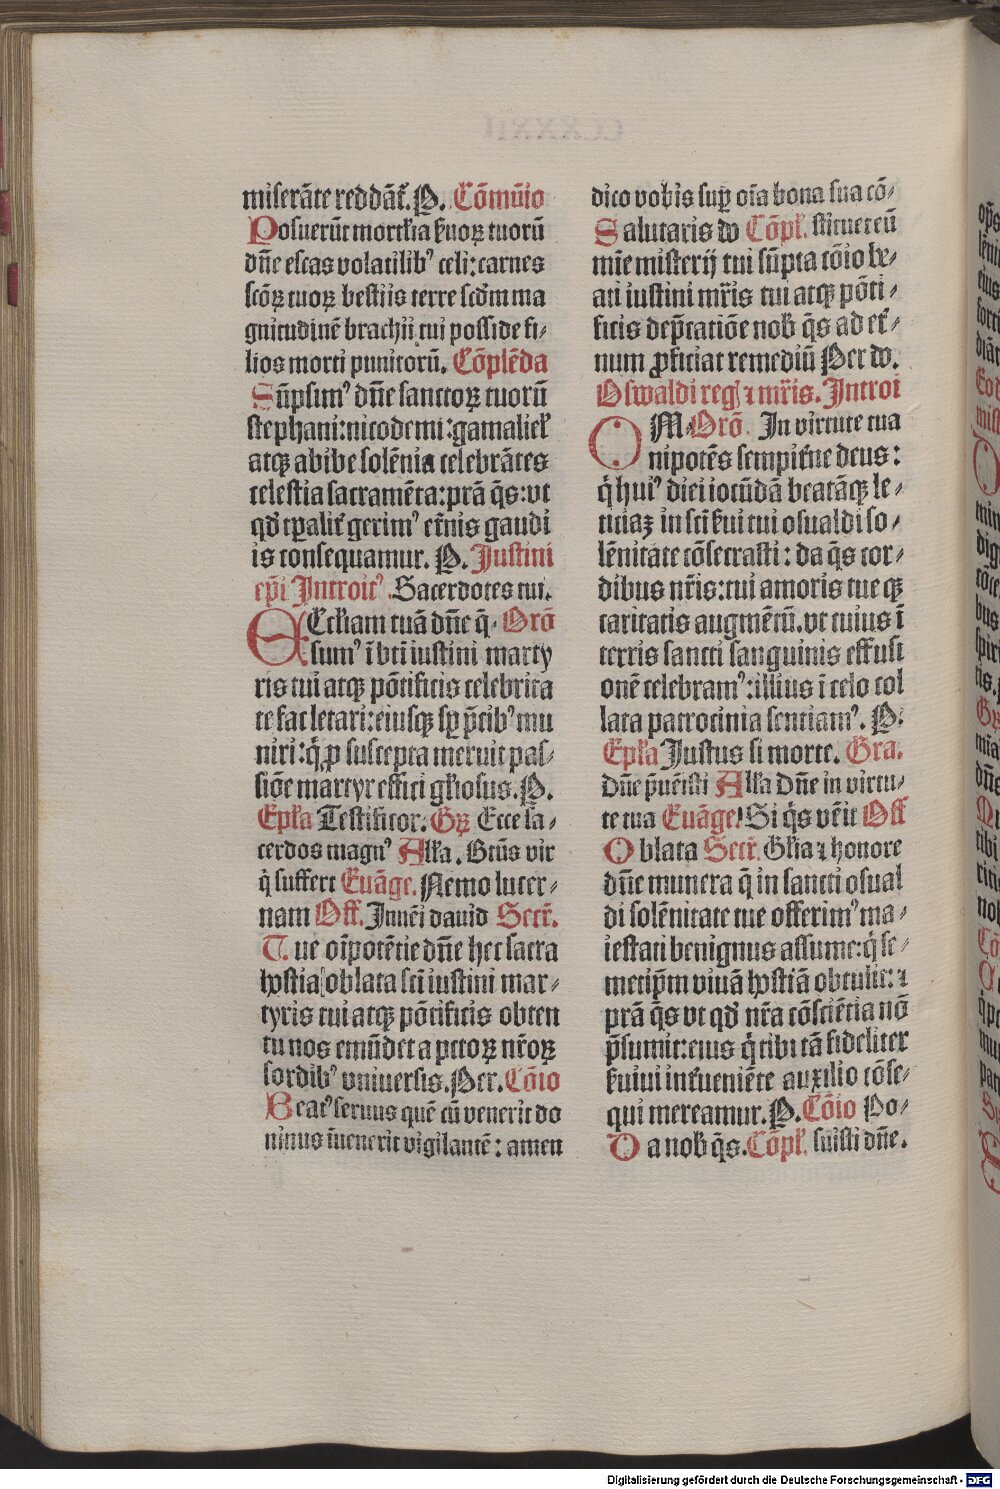 miserāte reddāt᷑. P. Cōmūio
Posuerūt morticīa ẜuoꝝ tuorū
dn̄e escas volatilib⁹ celi: carnes
scōꝝ tuoꝝ bestijs terre scd̄m ma
gnitudinē brachij tui posside fi⸗
lios morti punitorū. Cōplēda
Sūpsim⁹ dn̄e sanctoꝝ tuorū
stephani: nicodemi: gamaliel
atqꝫ abibe solēnia celebrātes
celestia sacramēta: prā q̄s: vt
qd̄ tꝑalit᷑ gerim⁹ et᷑nis gaudi
is consequamur. P. Justini
ep̄i Introit⁹. Sacerdotes tui.
Ecl̄iam tuā dn̄e q̄⸗ Orō
sum⁹ ī bt̄i iustini marty
ris tui atqꝫ pōtificis celebrita
te fac letari: eiusqꝫ sꝑ p̄cib⁹ mu
niri: q̄ ꝓ suscepta meruit pas⸗
siōe martyr effici gl̄iosus. P.
Epl̄a Testificor. Gꝝ Ecce sa⸗
cerdos magn⁹ All̄a. Btūs vir
q̄ suffert Euāge. Nemo lucer⸗
nam Off. Inuēi dauid Secr̄.
Tue oīpotētie dn̄e hec sacra
hostia oblata sc̄i iustini mar⸗
tyris tui atqꝫ pōtificis obten
tu nos emūdet a pctōꝝ nr̄oꝝ
sordib⁹ vniuersis. Per. Cōio
Beat⁹ seruus quē cū venerit do
minus īuenerit vigilantē: amen
dico vobis suꝑ oīa bona sua cō⸗
Salutaris do Cōpl̄. stituet eū
mīe misterij tui sūpta cōio be⸗
ati iustini mr̄is tui atqꝫ pōti⸗
ficis dep̄catiōe nob̄ q̄s ad et᷑⸗
num ꝓficiat remediū Per do.
Oswaldi reḡ ⁊ mr̄is. Introi
M. Orō. In virtute tua
Onipotēs sempit᷑ne deus:
q̄ hui⁹ diei iocūdā beatāqꝫ le⸗
ticiaꝫ in sc̄i ẜui tui osualdi so⸗
lēnitate cōsecrasti: da q̄s cor⸗
dibus nr̄is: tui amoris tue qꝫ
caritatis augmētū. vt cuius ī
terris sancti sanguinis effusi
onē celebram⁹: illius ī celo col
lata patrocinia sentiam⁹. P.
Epl̄a Justus si morte. Gra.
Dn̄e p̄uēisti All̄a Dn̄e in virtu⸗
te tua Euāge! Si q̄s vēit Off
Oblata Secr̄. Gl̄ia ⁊ honore
dn̄e munera q̄ in sancti osual
di solēnitate tue offerim⁹ ma⸗
iestati benignus assume: q̄ se⸗
metip̄m viuā hostiā obtulit: ⁊
prā q̄s vt qd̄ nr̄a cōsciētia nō
p̄sumit: eius q̄ tibi tā fideliter
ẜuiui int᷑ueniēte auxilio cōse⸗
qui mereamur. P. Cōio Po⸗
Da nob̄ q̄s. Cōpl̄. suisti dn̄e.
Digitalisierung gefördert durch die Deutsche Forschungsgemeinschaft - DFG